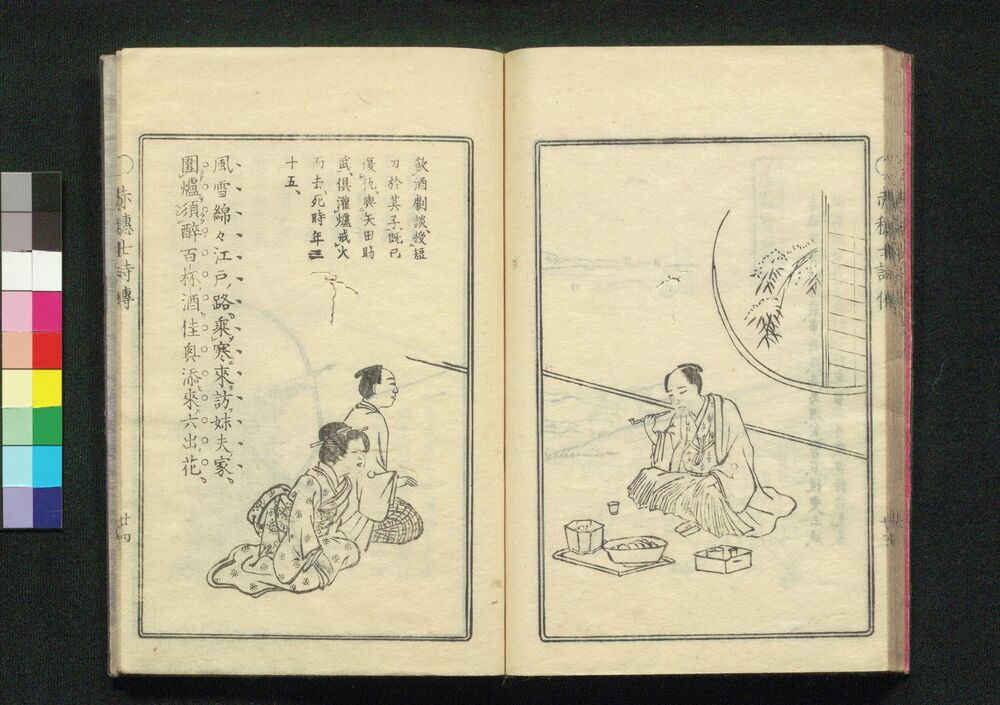 赤穂士詩傳
飲酒劇談授短
刀於其子既已
復仇與矢田助
武俱灌爐戒火
而去死時年三
十五、
風雪綿々江戸路乘寒來訪妹夫家、
圍爐須醉百杯酒佳興添來六出花、
赤穗士詩傳
廿四